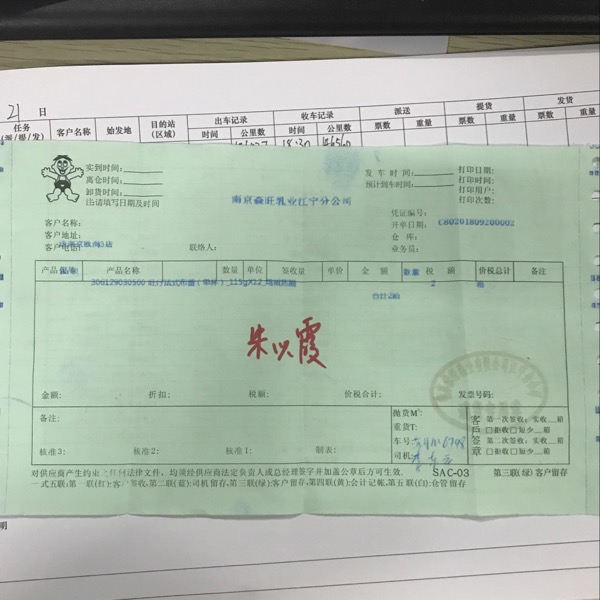 21 日
任务
(派/提/发) 客户名称 始发地 目的站
(区域) 出车记录 收车记录 派送 提货 发货
时间 公里数 时间 公里数 票数 重量 票数 重量 票数 重量
18:30
实到时间:
离仓时间:
卸货时间:
注:请填写日期及时间
南京森旺乳业江宁分公司
发车时间:
预计到车时间:
打印日期:
打印时间:
打印用户:
打印次数:
凭证编号:
客户名称:
开单日期: C80201809200002
客户地址:
仓 库:
客户电话: 联络人: 业务员:
产品 产品名称 数量 单位 签收量 单价 金 额 数量 税 额 价税总计 备注
306129030500 2 箱
合计:2箱
朱以霞
金额: 折扣: 税额: 价税合计: 发票号码:
备注:
抛货M³:
重货T:
车号:
司机:
客户签章
第一次签收: 实收__箱
□拒收□短少__箱
第二次签收: 实收__箱
□拒收□短少__箱
核准3: 核准2: 核准1: 制表:
对供应商产生约束之任何法律文件,均须经供应商法定负责人或总经理签字并加盖公章后方可生效。 SAC-03 第三联(绿)客户留存
一式五联:第一联(红):客户签收,第二联(蓝):司机留存,第三联(绿):客户留存,第四联(黄):会计记帐,第五联(白):仓管留存
明